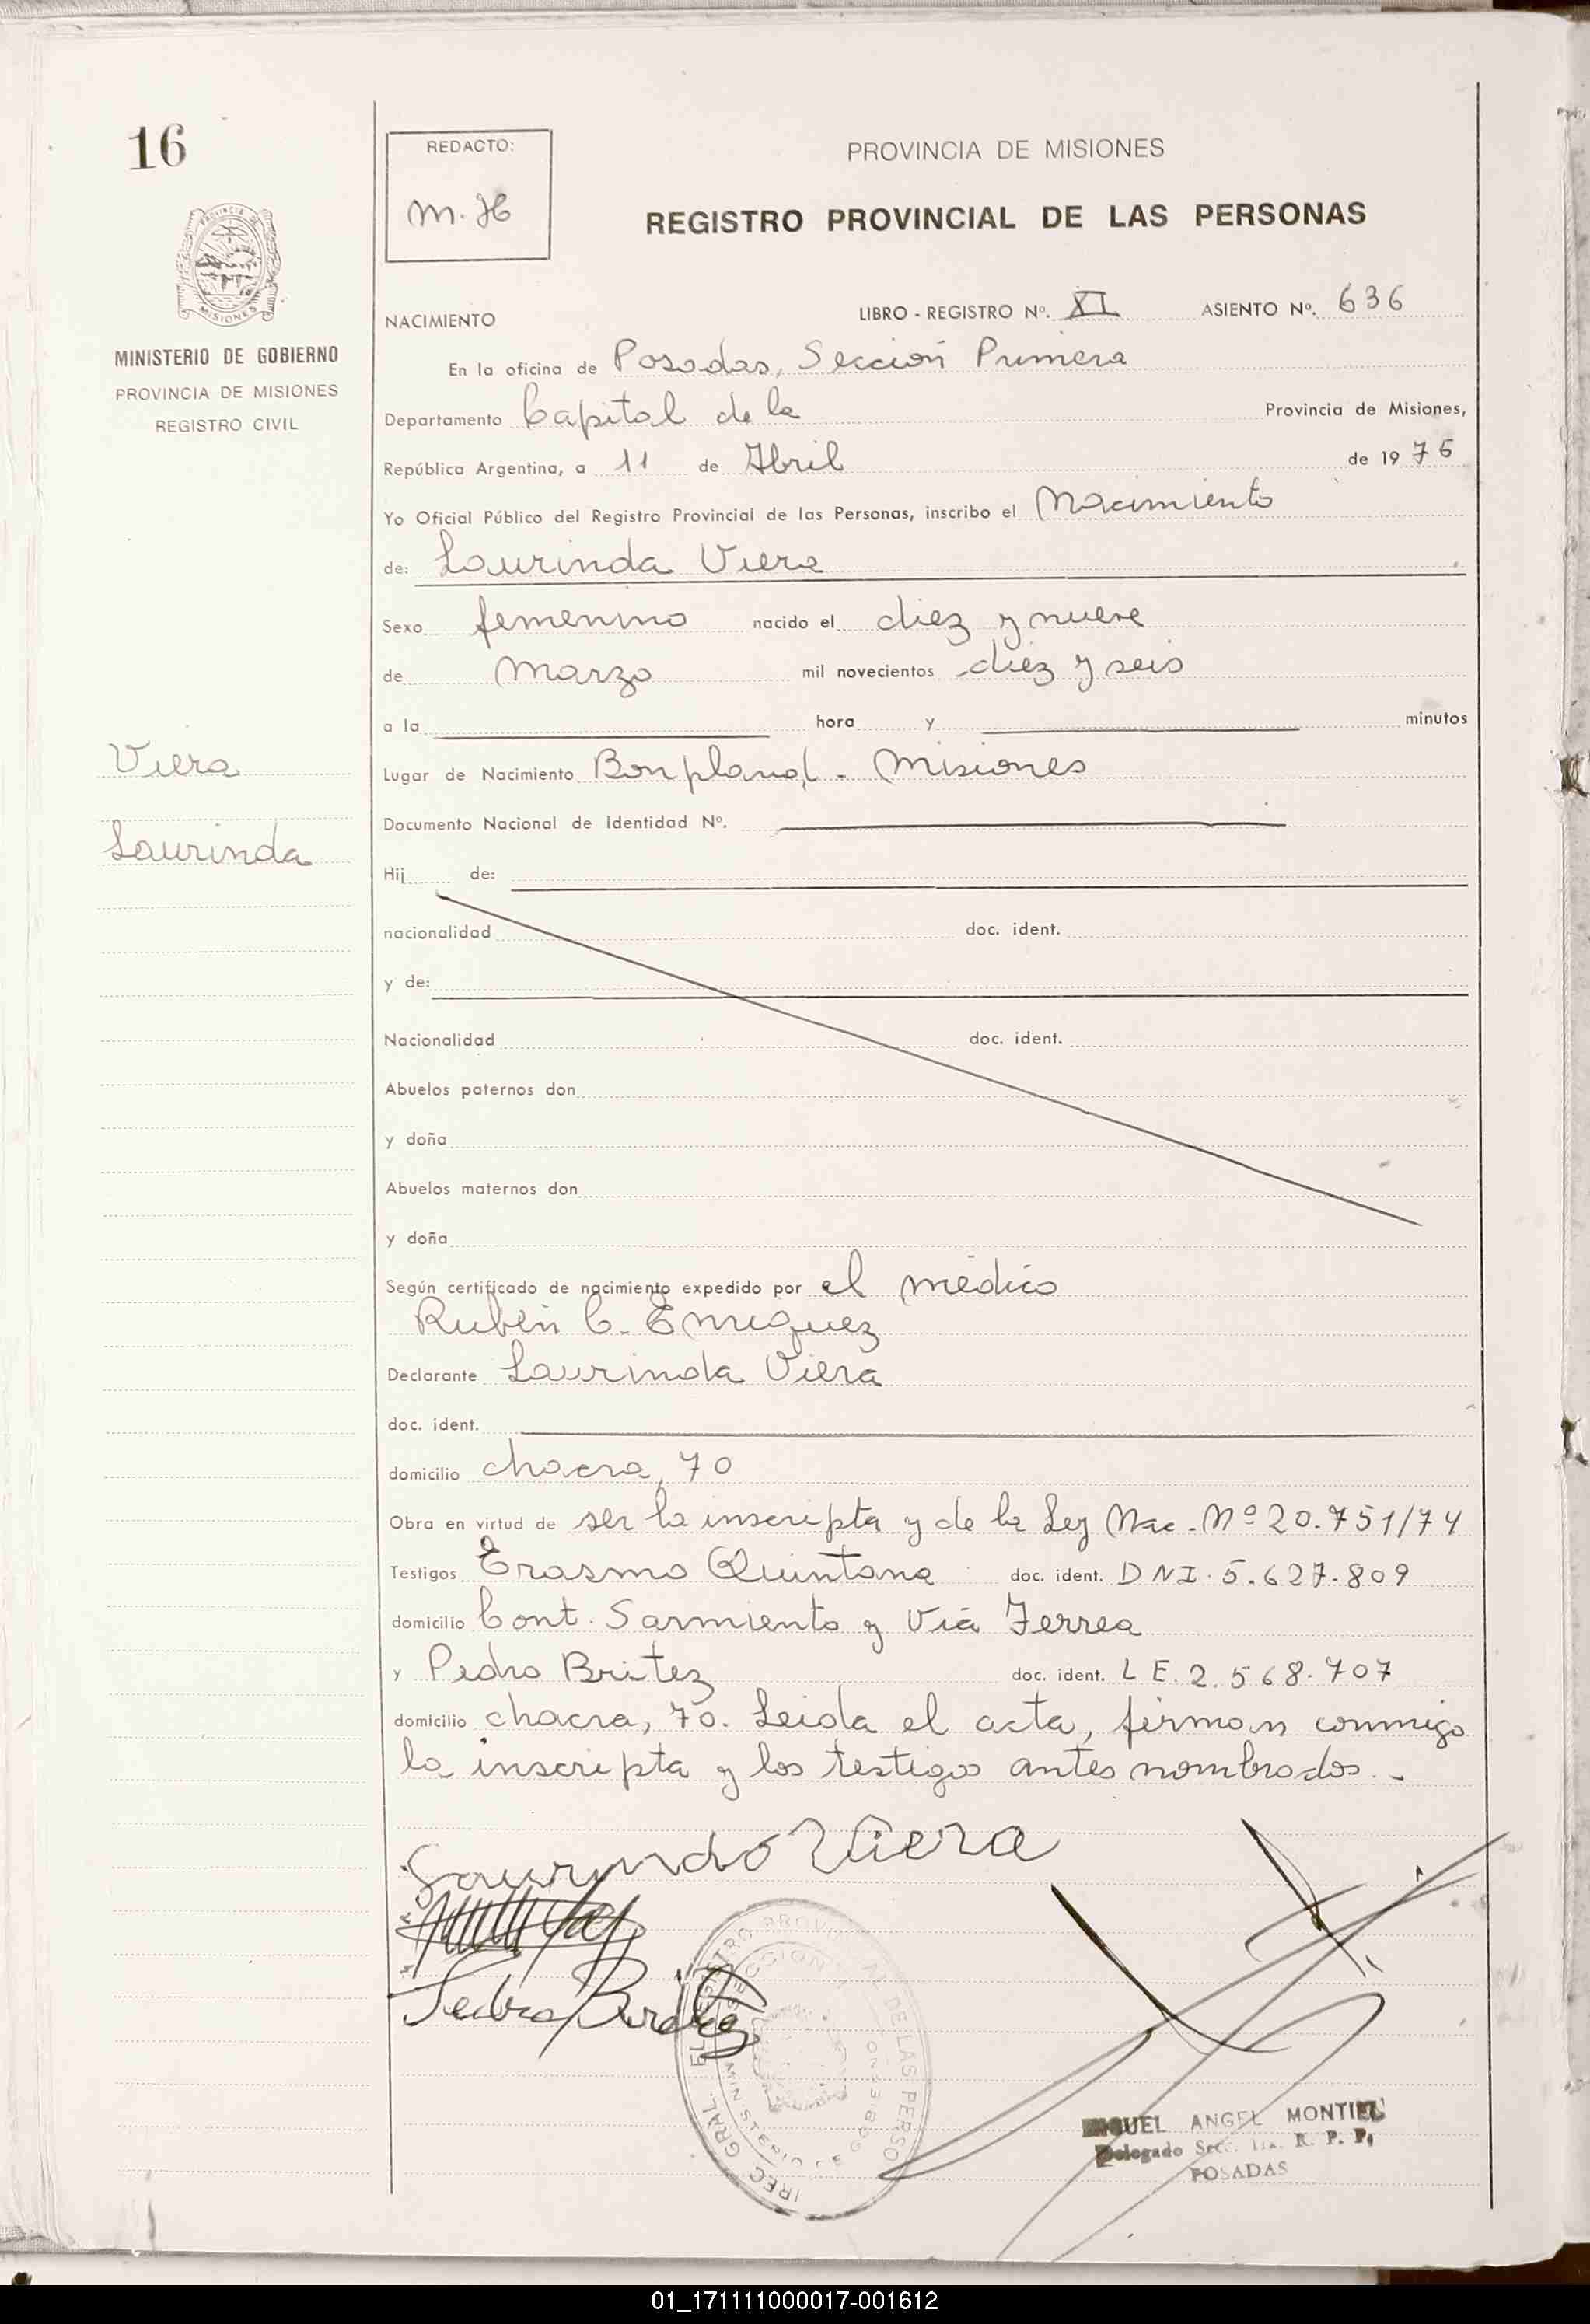 16
REDACTO:
M. H
PROVINCIA DE MISIONES
REGISTRO PROVINCIAL DE LAS PERSONAS
PROVINCIA DE
MISIONES
MINISTERIO DE GOBIERNO
PROVINCIA DE MISIONES
REGISTRO CIVIL
NACIMIENTO LIBRO - REGISTRO Nº. XI ASIENTO Nº. 636
En la oficina de Posadas, Sección Primera
Departamento Capital de la Provincia de Misiones,
República Argentina, a 11 de Abril de 1976
Yo Oficial Público del Registro Provincial de las Personas, inscribo el Nacimiento
de: Laurinda Viera
Sexo femenino nacido el diez y nueve
de marzo mil novecientos diez y seis
a la hora y minutos
Viera
Lugar de Nacimiento Bonpland - Misiones
Documento Nacional de Identidad Nº.
Laurinda
Hij de:
nacionalidad doc. ident.
y de:
Nacionalidad doc. ident.
Abuelos paternos don
y doña
Abuelos maternos don
y doña
Según certificado de nacimiento expedido por el médico
Rubén C. Enriquez
Declarante Laurinda Viera
doc. ident.
domicilio chacra, 70
Obra en virtud de ser la inscripta y de la Ley Nac. Nº 20.751/74
Testigos Erasmo Quintana doc. ident. DNI. 5.627.809
domicilio Cont. Sarmiento y Vía Ferrea
y Pedro Britez doc. ident. L E. 2.568.707
domicilio chacra, 70. Leida el acta, firman conmigo
la inscripta y los testigos antes nombrados. -
Laurindo Viera
Pedro Britez
MIGUEL ANGEL MONTIEL
Delegado Secc. 1ra. R. P. P.
POSADAS
01_171111000017-001612